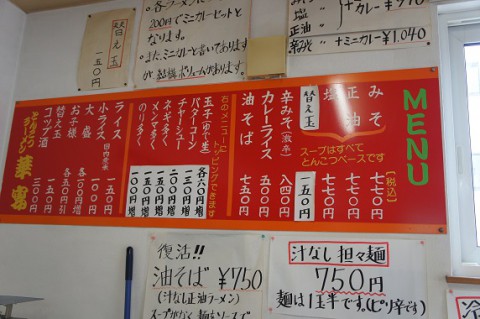 替え玉
一五〇円
各ラーメンに
200円でミニカレーセットと
なります。
・また、ミニカレーと書いてありますが
が結構ボリュームがあります
塩
正油
辛みそ
+カレー ¥940
+ミニカレー ¥1,040
MENU
【税込】
みそ 七七〇円
正油 七七〇円
塩 七七〇円
スープはすべて
とんこつベースです
替え玉 一五〇円
辛みそ(激辛) 八四〇円
カレーライス 七五〇円
油そば 七五〇円
右のメニューにトッピングできます
玉子(ゆで・生) 各六〇円増
バターコーン 一三〇円増
チャーシュー 二二〇円増
メンマ多く 一五〇円増
ネギ多く 一五〇円増
のり多く 一〇〇円増
ライス 一五〇円
小ライス 一〇〇円
国内産米
大盛 各一五〇円増
お子様 各五〇円引
替え玉 一五〇円
コップ酒 三〇〇円
とんこつラーメン
復活!!
油そば ¥750
(汁なし正油ラーメン)
汁なし担々麺
750円
麺は1玉半です。(ピリ辛です)
冷